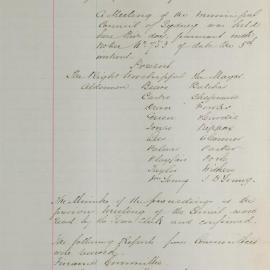 A Meeting of the Municipal
Council of Sydney was held
here this day, pursuant to
Notice No 753 of date the 5th
instant.
Present
The Right Worshipful The Mayor
Aldermen Beare Butcher
Carter Chapman
Dean Fowler
Green Hordern
Jones Kippax
Lee O'Connor
Palmer Parker
Playfair Poole
Taylor Withers
Wm Young J D Young
The Minutes of the proceedings at the
previous Meeting of the Council were
read by the Town Clerk and confirmed.
The following Reports from Committees
were
Finance Committee